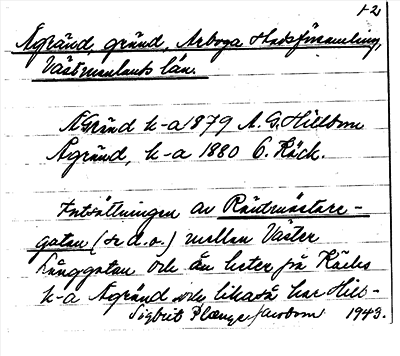 12
Ågränd, gränd, Arboga stadsförsamling,
Västmanlands län.
ÅGränd k-a 1879 A. G. Hillbom
Ågränd, k-a 1880 O. Räck.
Fortsättningen av Räntmästare-
gatan (se d. o.) mellan Väster
Långgatan och ån heter på Räcks
k-a Ågränd och likaså har Hill-
Sigbrit Plænge Jacobson 1943.